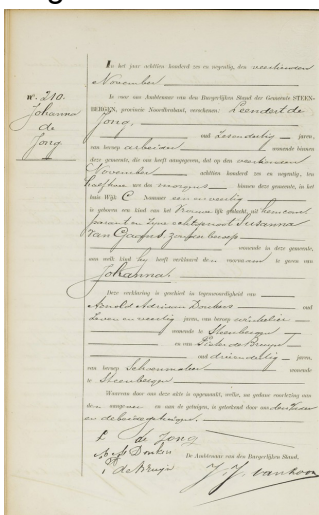 In het jaar achttien honderd zes en negentig, den veertienden
November
is voor ons Ambtenaar van den Burgerlijken Stand der Gemeente STEEN-
BERGEN, provincie Noordbrabant, verschenen: Leendert de
Jong
oud zesendertig jaren,
van beroep arbeider wonende binnen
deze gemeente, die ons heeft aangegeven, dat op den veertienden
November achttien honderd zes en negentig, ten
half ure des morgens binnen deze gemeente, in het
huis Wijk C Nummer een en veertig
is geboren een kind van het Vrouwelijk geslacht, uit hem
en zijne echtgenoot Susanna
van zonder beroep
wonende in deze gemeente,
aan welk kind hij heeft verklaard den voornaam te geven van
Johanna
Deze verklaring is geschied in tegenwoordigheid van
Arnold Adriaan Donkers oud
zeven en veertig jaren, van beroep winkelier
wonende te Steenbergen
en van Pieter de Bruyn
oud drieendertig jaren,
van beroep Schoenmaker wonende
te Steenbergen
Waarvan door ons deze akte is opgemaakt, welke, na gedane voorlezing aan
den aangever en aan de getuigen, is geteekend door ons, den
en de beide getuigen.
No. 210.
Johanna
de
Jong
L de Jong
Donkers
P de Bruyn
De Ambtenaar van den Burgerlijken Stand,
J. J. van Loon